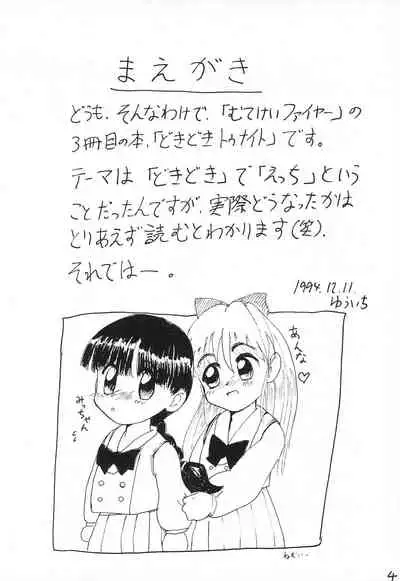 まえがき
どうも、そんなわけで、「むてけいファイヤー」の
3冊目の本、「どきどきトゥナイト」です。
テーマは「どきどき」で「えっち」という
ことだったんですが、実際どうなったかは
とりあえず読むとわかります(笑).
それではー。
1994.12.11
ゆういち
あんな♡
みっちゃん
4